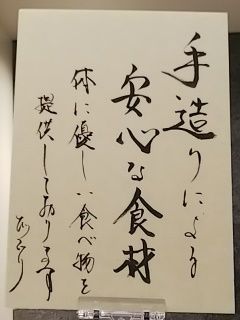 手造りによる
安心な食材
体に優しい食べ物を
提供しております